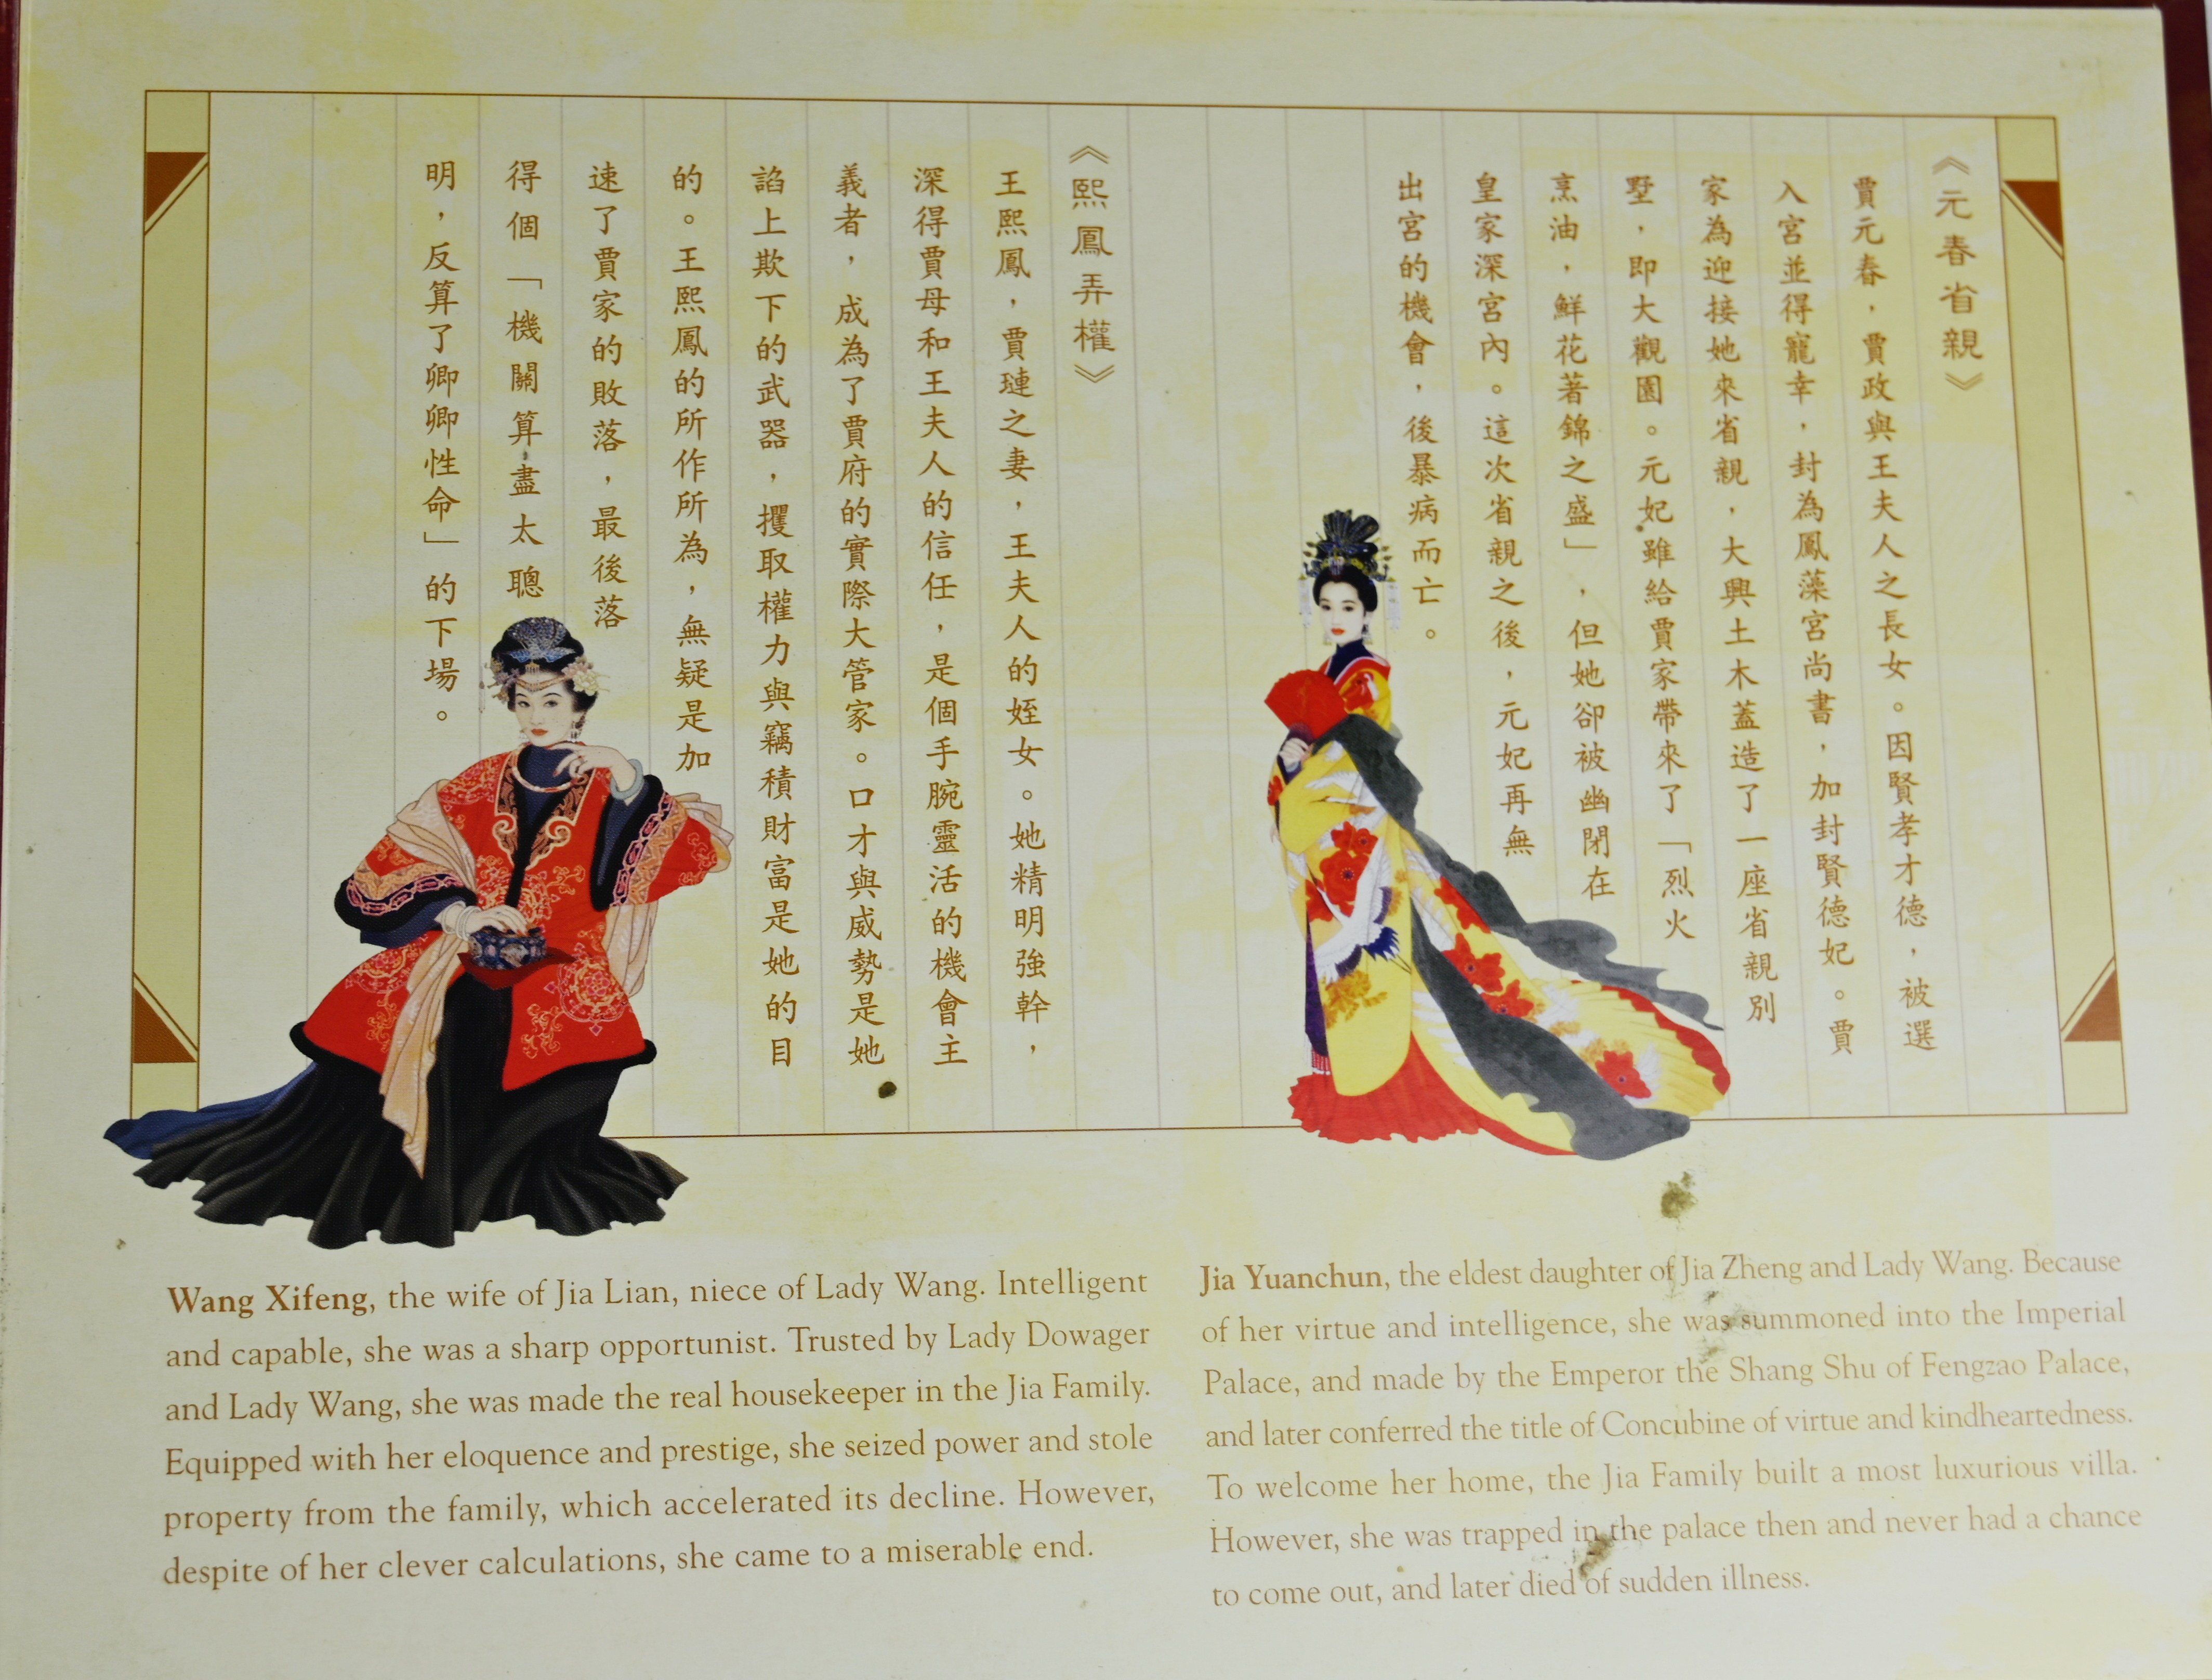 《元春省親》
賈元春，賈政與王夫人之長女。因賢孝才德，被選
入宮並得寵幸，封為鳳藻宮尚書，加封賢德妃。賈
家為迎接她來省親，大興土木蓋造了一座省親別
墅，即大觀園。元妃雖給賈家帶來了「烈火
烹油，鮮花著錦之盛」，但她卻被幽閉在
皇家深宮內。這次省親之後，元妃再無
出宮的機會，後暴病而亡。
《熙鳳弄權》
王熙鳳，賈璉之妻，王夫人的姪女。她精明強幹，
深得賈母和王夫人的信任，是個手腕靈活的機會主
義者，成為了賈府的實際大管家。口才與威勢是她
諂上欺下的武器，攫取權力與竊積財富是她的目
的。王熙鳳的所作所為，無疑是加
速了賈家的敗落，最後落
得個「機關算盡太聰
明，反算了卿卿性命」的下場。
Wang Xifeng, the wife of Jia Lian, niece of Lady Wang. Intelligent
and capable, she was a sharp opportunist. Trusted by Lady Dowager
and Lady Wang, she was made the real housekeeper in the Jia Family.
Equipped with her eloquence and prestige, she seized power and stole
property from the family, which accelerated its decline. However,
despite of her clever calculations, she came to a miserable end.
Jia Yuanchun, the eldest daughter of Jia Zheng and Lady Wang. Because
of her virtue and intelligence, she was summoned into the Imperial
Palace, and made by the Emperor the Shang Shu of Fengzao Palace,
and later conferred the title of Concubine of virtue and kindheartedness.
To welcome her home, the Jia Family built a most luxurious villa.
However, she was trapped in the palace then and never had a chance
to come out, and later died of sudden illness.